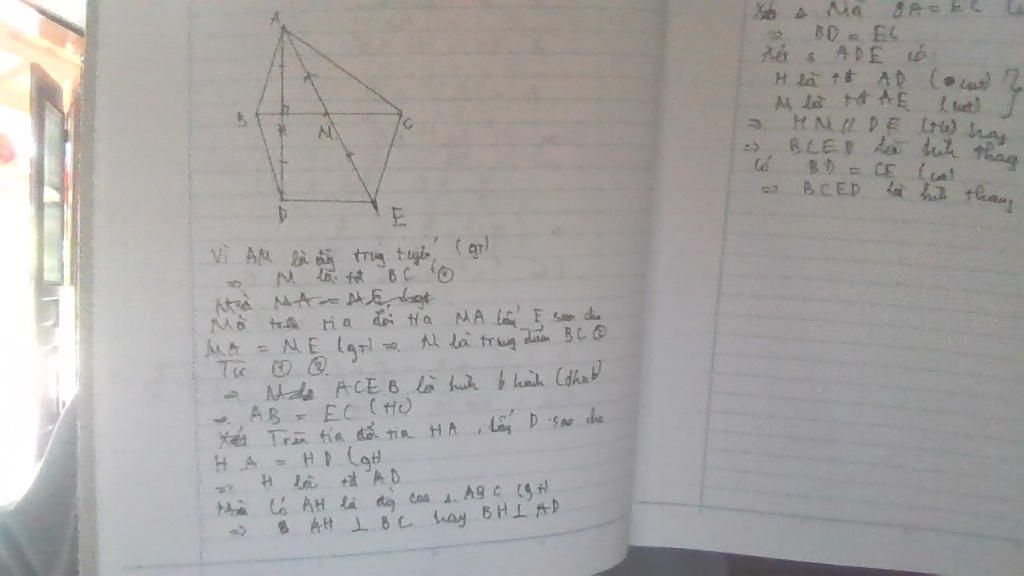 A
B
M
C
D
E
Vì AM là đg trung tuyến (gt)
⇒ M là tđ BC ①
Mà MA = ME
Mà trên tia đối tia MA lấy E sao cho
MA = ME (gt) ⇒ M là trung điểm BC ②
Từ ① ②
⇒ ACEB là hình b hành (dhnb)
⇒ AB = EC (t/c)
Xét Trên tia đối tia HA, lấy D sao cho
HA = HD (gt)
⇒ H là tđ AD
Mà Có AH là đg cao ABC (gt)
⇒ AH ⊥ BC hay BH ⊥ AD
Mà BA = EC
⇒ BD = EC
Xét △ ADE có
H là tđ AD (cmt)
M là tđ AE (cmt)
⇒ HM // DE (t/c) hay
⇒ BCED là hình thang
Có BD = CE (cmt)
⇒ BCED là hình thang